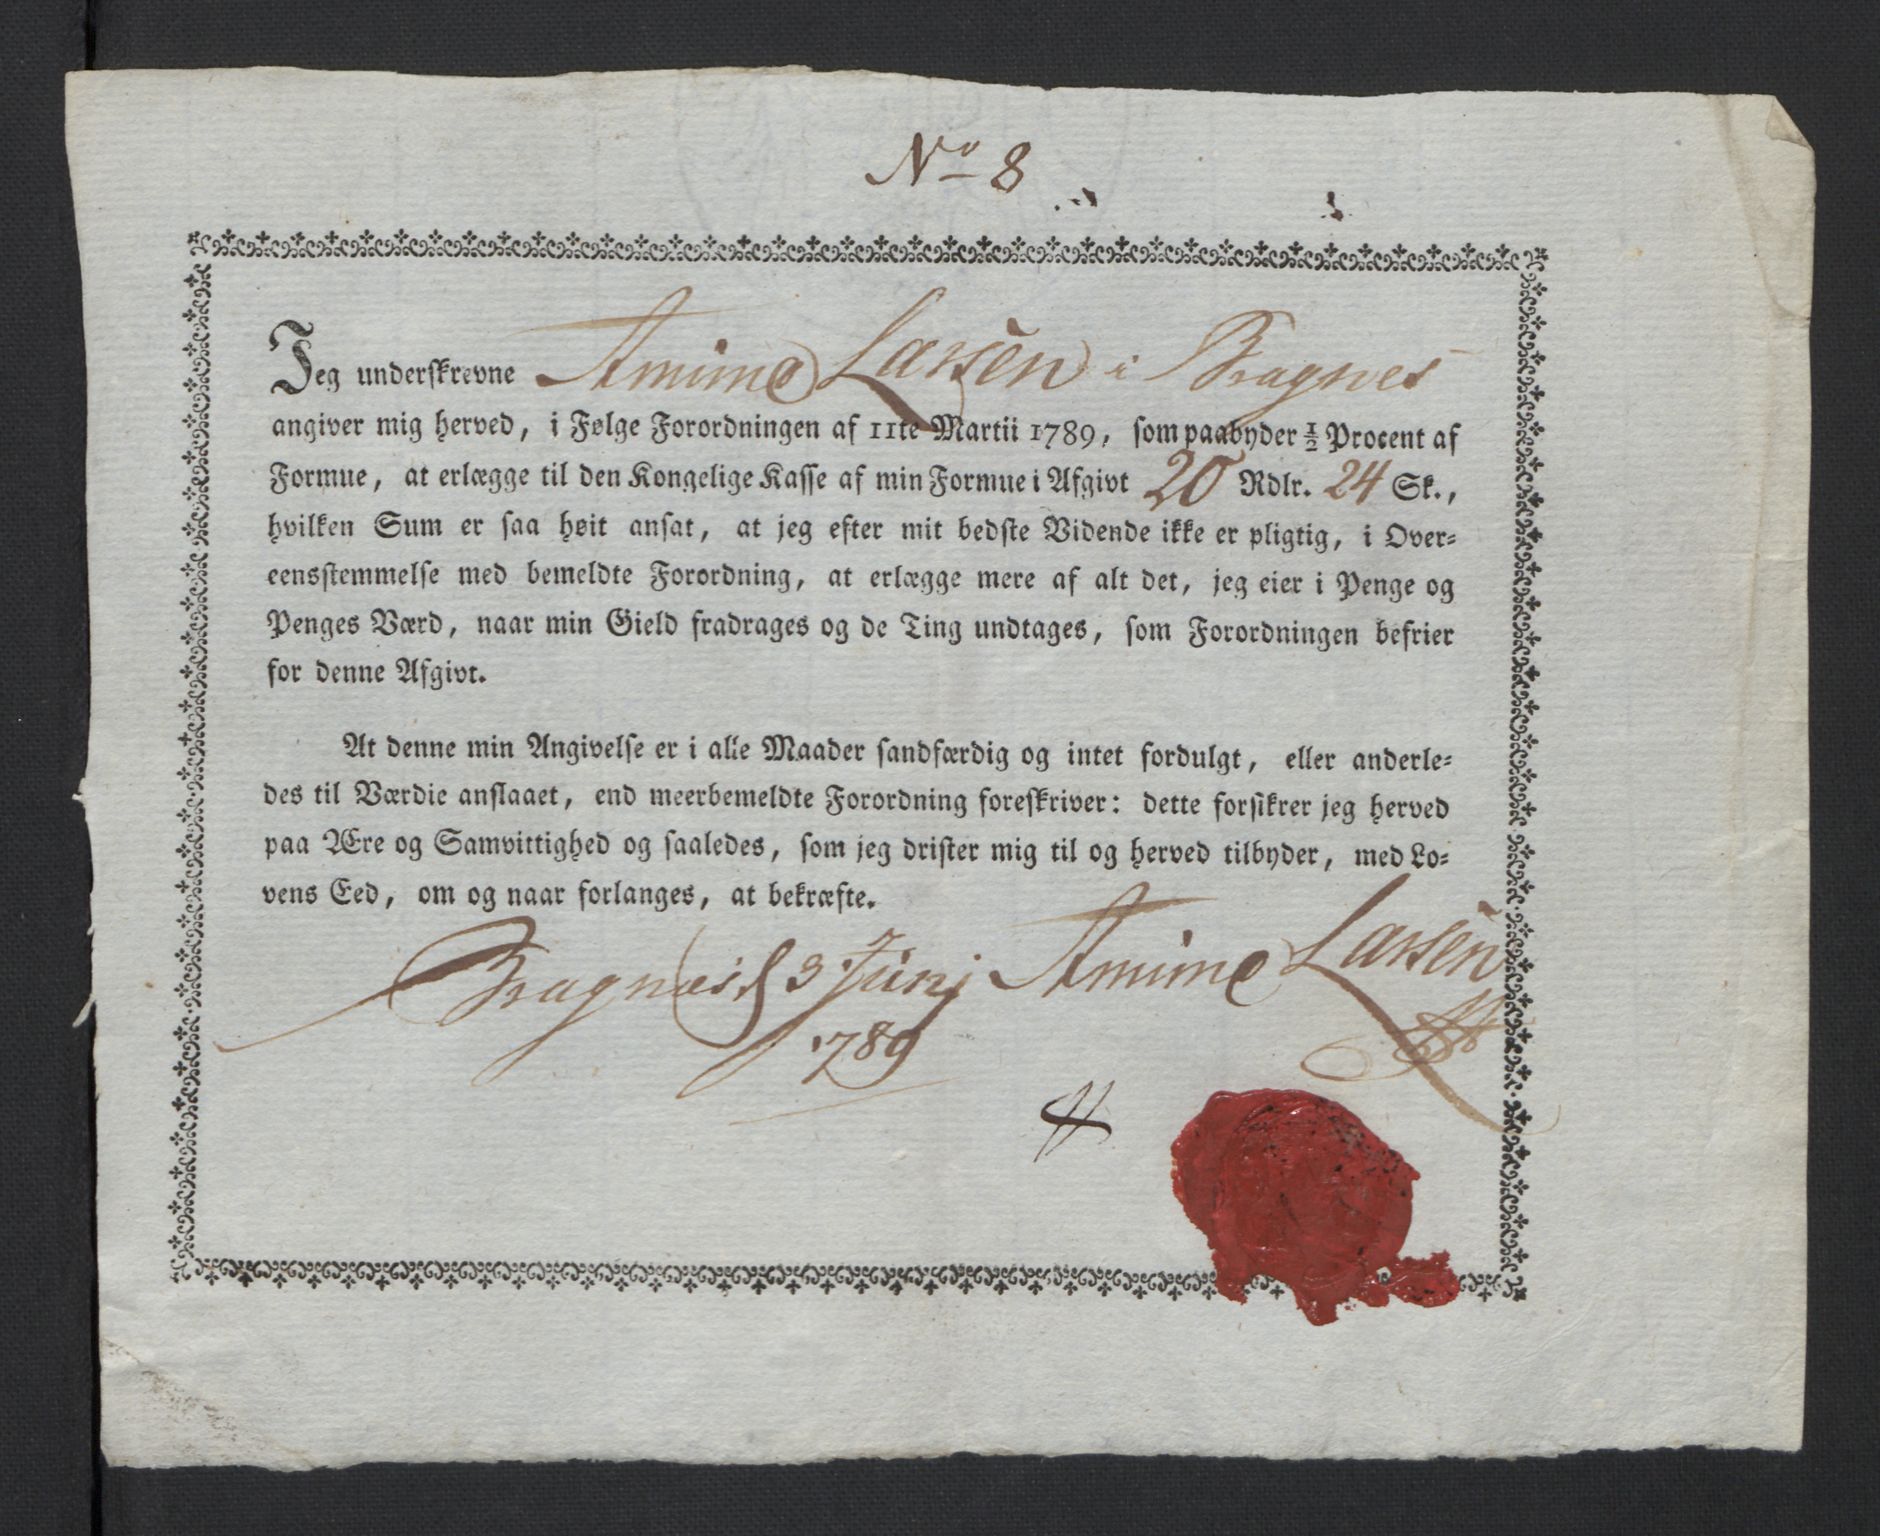 No 8
Jeg underskrevne Amimo Lassen i Bragnes
angiver mig herved, i Følge Forordningen af 11te Martii 1789, som paabyder ½ Procent af
Formue, at erlægge til den Kongelige Kasse af min Formue i Afgivt 20 Rdlr. 24 Sk.,
hvilken Sum er saa høit ansat, at jeg efter mit bedste Vidende ikke er pligtig, i Over-
eensstemmelse med bemeldte Forordning, at erlægge mere af alt det, jeg eier i Penge og
Penges Værd, naar min Gield fradrages og de Ting undtages, som Forordningen befrier
for denne Afgivt.
At denne min Angivelse er i alle Maader sandfærdig og intet fordulgt, eller anderle-
des til Værdie anslaaet, end meerbemeldte Forordning foreskriver: dette forsikrer jeg herved
paa Ære og Samvittighed og saaledes, som jeg drister mig til og herved tilbyder, med Lo-
vens Eed, om og naar forlanges, at bekræfte.
Bragnæs d 3 Junj Amimo Lassen
1789